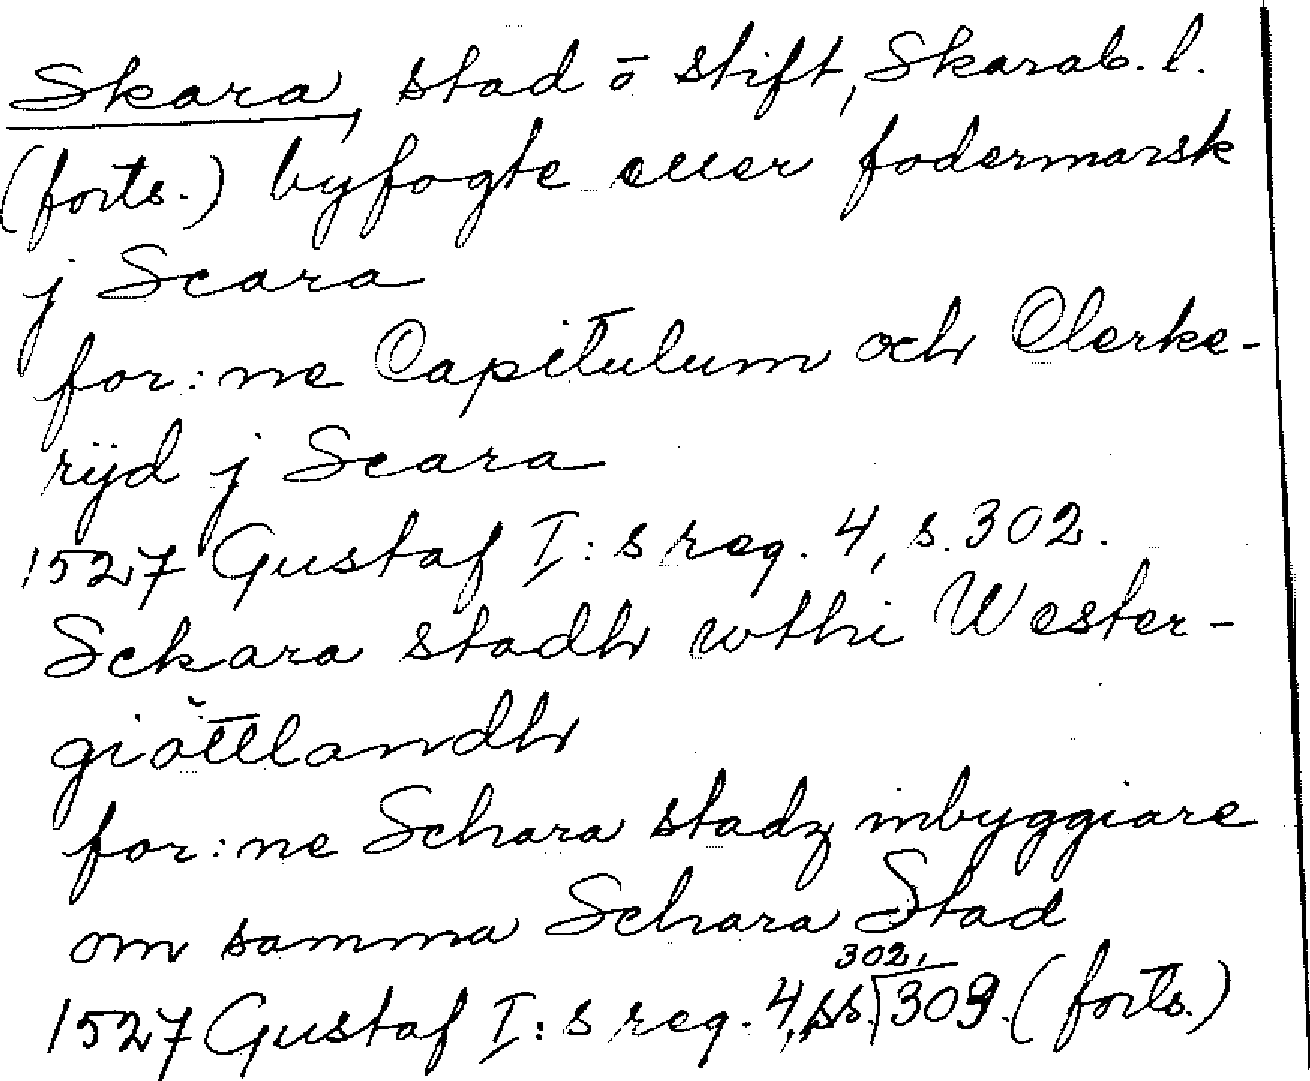 Skara, stad o stift, Skarab. l.
(forts.) byfogte eller fodermarsk
j Scara
for:ne Capitulum och Clerke-
rijd j Scara
1527 Gustaf I:s reg. 4, s. 302.
Sckara stadh wthi Wester-
giöttlandh
for:ne Schara stadz inbyggiare
om samma Schara Stad
1527 Gustaf I:s reg. 4, ss. 302, 309. (forts.)